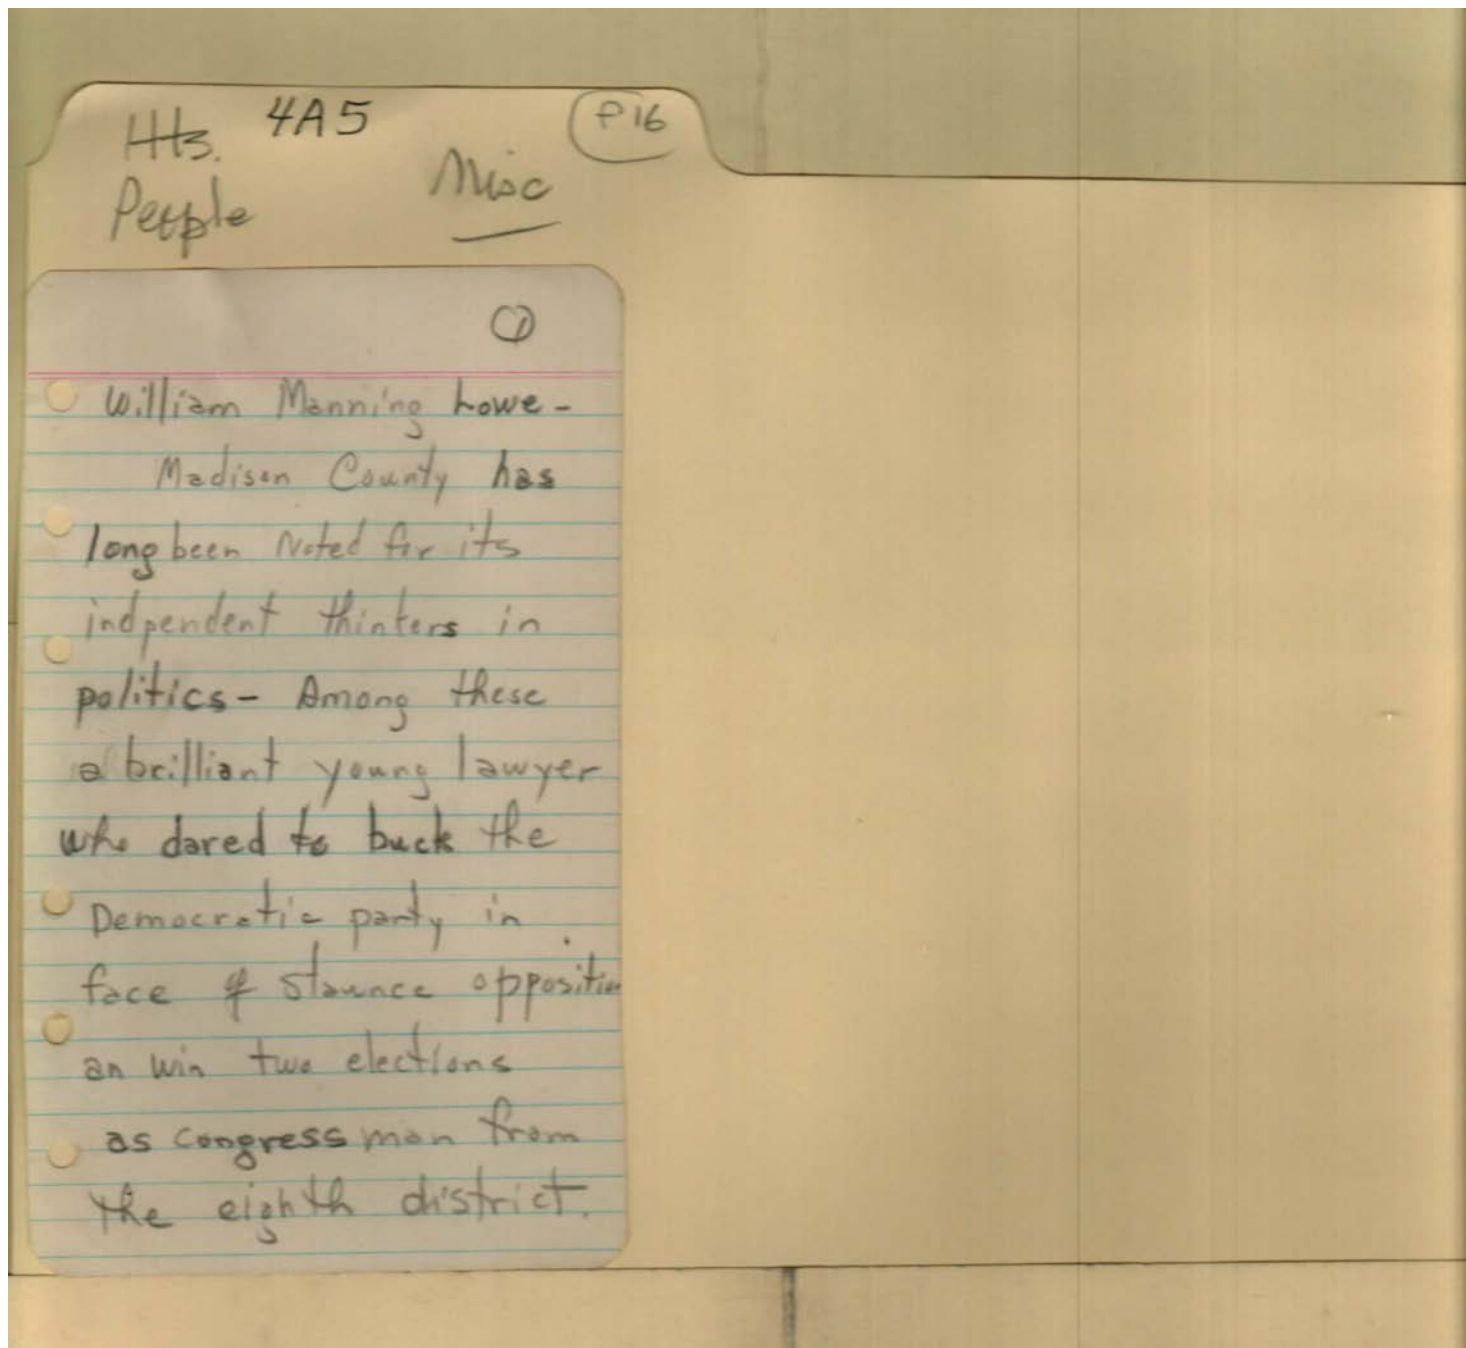 Hts. 4A5 P16
People Misc
1
William Manning Lowe -
Madison County has
long been Noted for its
indpendent thinkers in
politics - Among these
a brilliant young lawyer
who dared to buck the
Democratic party in
face of staunce opposition
an win two elections
as congressman from
the eighth district.